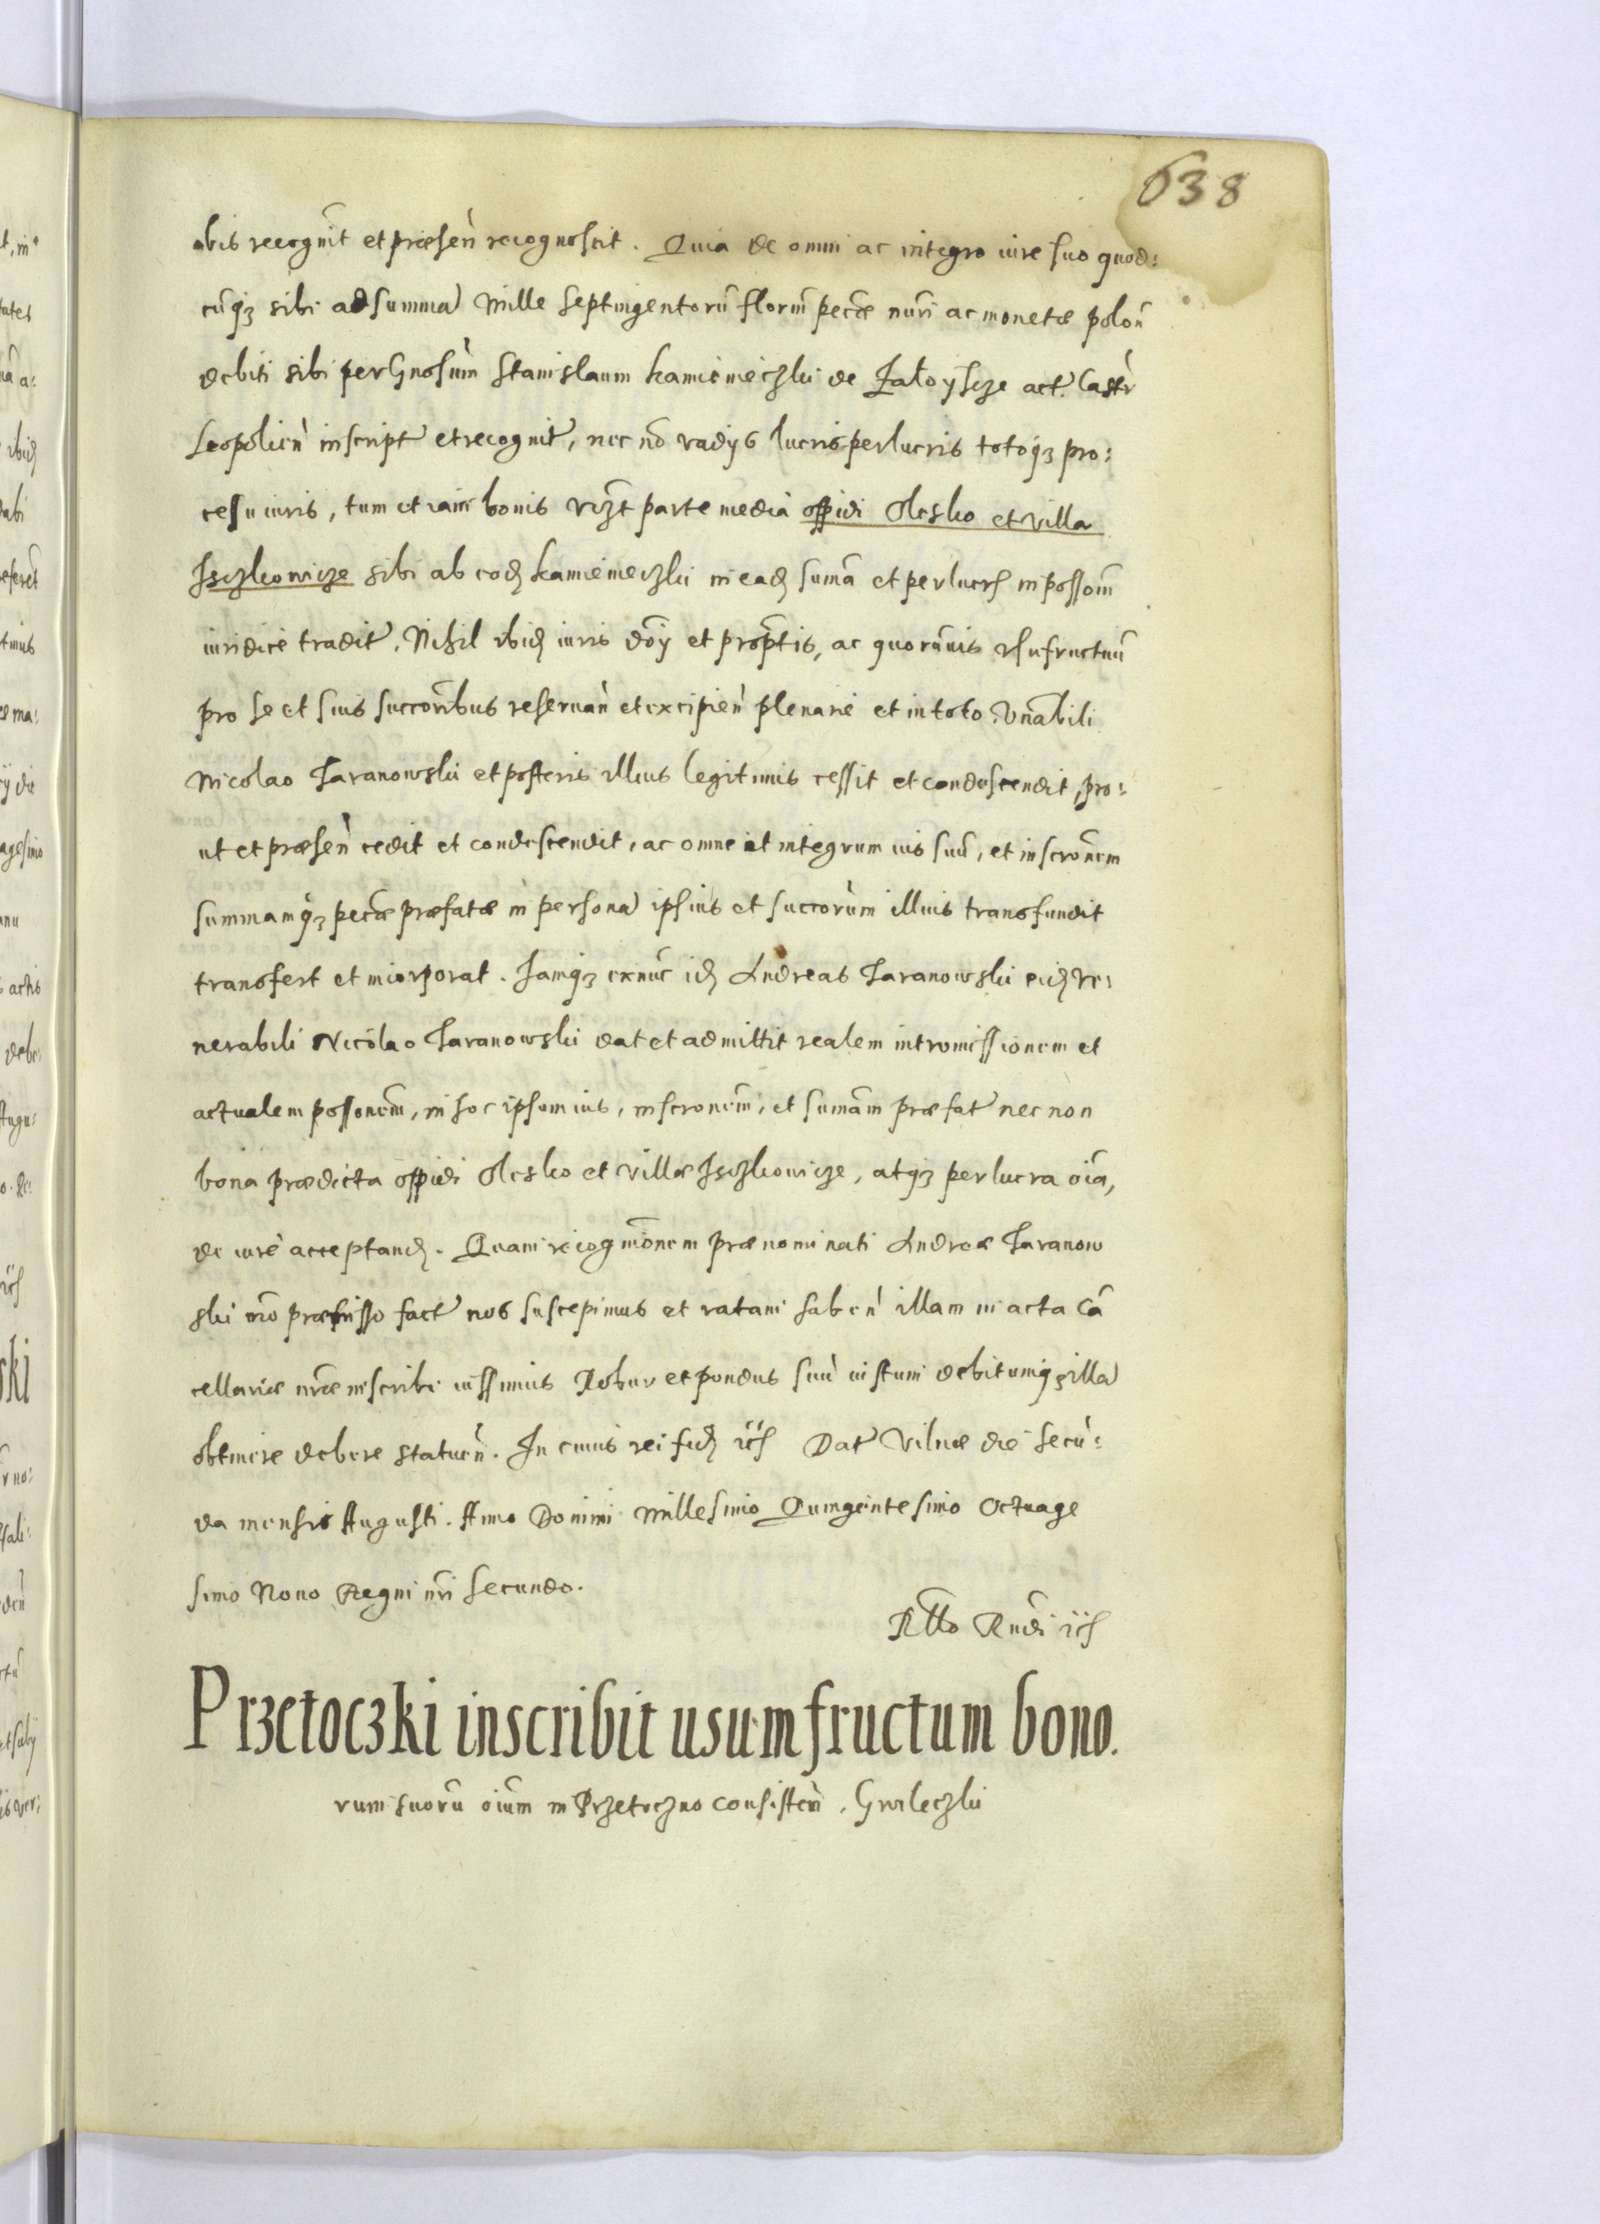 638
obis recognit et præsen recognoscit. Quia de omni ac integro iure suo quod:
cūq3 sibi ad summā Mille Septingentorū florin pecūæ nūri ac monetæ polon
debiti sibi per Gnosum Stanislaum Kamienieczki de Zaloyscze act. Castr
Leopolien inscript et recognit, nec nō vadijs lucris perlucris totoq3 pro:
cesu iuris, tum etiam bonis vizt parte media oppidi Olesko et villa
Jsczkowicze sibi ab eod Kamienieczki in ead suma et perlucris in possom
iuridice tradit. Nihil ibid iuris dōij et proptis, ac quorūvis usufructuū
pro se et suis succoribus reservan et excipien plenarie et in toto. Vnabili
Nicolao Taranowski et posteris illius legitimis cessit et condescendit, pro:
ut et præsen cedit et condescendit, ac omne et integrum ius suū, et inscronem
summamq3 pecūæ præfatæ in personā ipsius et succorum illius transfundit
transfert et incorporat. Jamq3 exnūc id Andreas Taranowski eid Ve:
nerabili Nicolao Taranowski dat et admittit realem intromissionem et
actualem possonem, in hoc ipsum ius, inscronem, et sumam præfat nec non
bona prædicta oppidi Olesko et villæ Jsczkowicze, atq3 perlucra oia,
de iure acceptand. Quam recognitonem prænominati Andreæ Taranow
ski mō præmisso fact nos suscepimus et ratam haben illam in acta Cā
cellariæ nræ inscribi iussimus Robur et pondus suū iustum debitumq3 illā
obtinere debere statuen. In cuius rei fid etc Dat Vilnæ die Secū:
da mensis Augusti. Anno Domini Millesimo Quingentesimo Octuage
simo Nono Regni nri Secundo.
Rtto Rndi etc
Prze­toczki inscribit usumfructum bono.
rum suorū oium in Przetoczno consisten, Gwileczki